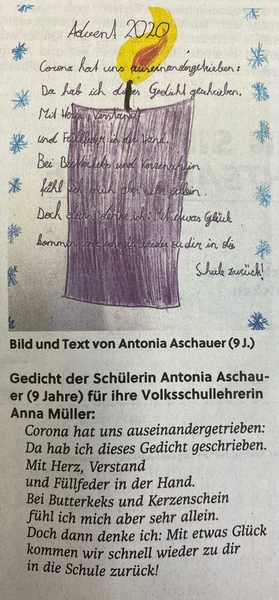 Advent 2020
Corona hat uns auseinandergetrieben:
Da hab ich dieses Gedicht geschrieben.
Mit Herz, Verstand
und Füllfeder in der Hand.
Bei Butterkeks und Kerzenschein
fühl ich mich aber sehr allein.
Doch dann denke ich: Mit etwas Glück
kommen wir schnell wieder zu dir in die
Schule zurück!
Bild und Text von Antonia Aschauer (9 J.)
Gedicht der Schülerin Antonia Aschau-
er (9 Jahre) für ihre Volksschullehrerin
Anna Müller:
Corona hat uns auseinandergetrieben:
Da hab ich dieses Gedicht geschrieben.
Mit Herz, Verstand
und Füllfeder in der Hand.
Bei Butterkeks und Kerzenschein
fühl ich mich aber sehr allein.
Doch dann denke ich: Mit etwas Glück
kommen wir schnell wieder zu dir
in die Schule zurück!